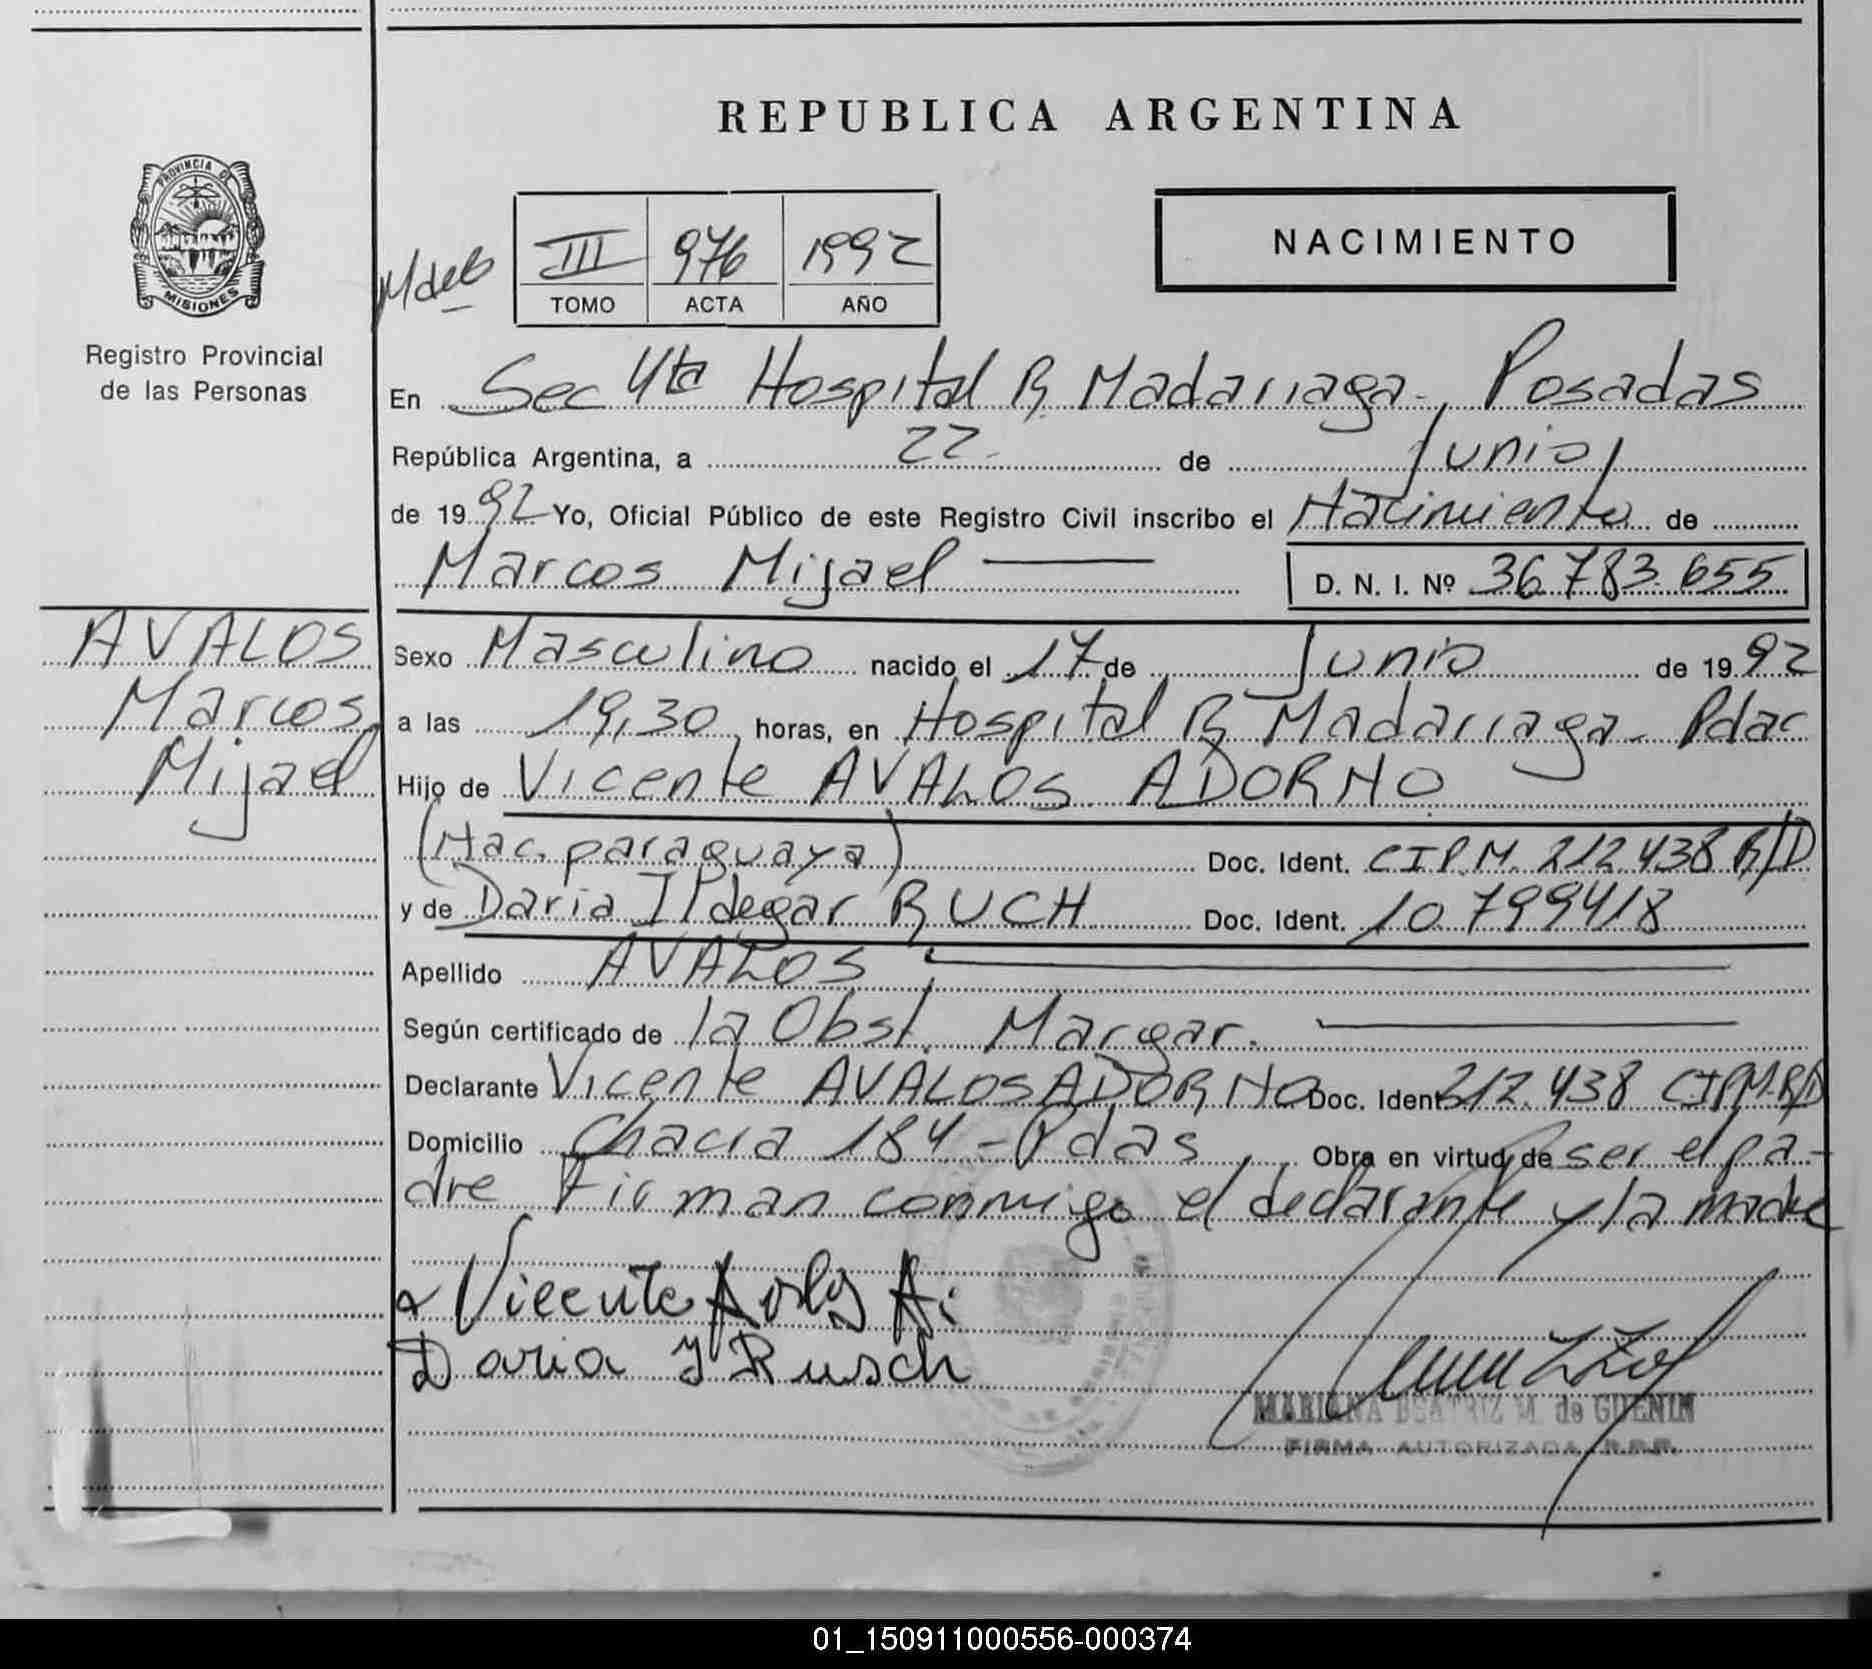 REPUBLICA ARGENTINA
PROVINCIA DE
MISIONES
Registro Provincial
de las Personas
III 976 1992
TOMO ACTA AÑO
NACIMIENTO
En Sec 4ta Hospital R. Madariaga - Posadas
República Argentina, a 22 de Junio
de 1992 Yo, Oficial Público de este Registro Civil inscribo el Nacimiento de
Marcos Mijael D. N. I. Nº 36.783.655
AVALOS
Marcos
Mijael
Sexo Masculino nacido el 17 de Junio de 1992
a las 19,30 horas, en Hospital R. Madariaga -
Hijo de Vicente AVALOS ADORNO
(Nac. paraguaya) Doc. Ident. CIP.M. 212.438 R/D
y de Daria Ildegar RUCH Doc. Ident. 10.799418
Apellido AVALOS
Según certificado de la Obst. Margar.
Declarante Vicente AVALOS ADORNO Doc. Ident 212.438 CIPM.R/D
Domicilio Chacra 184 - Pdas Obra en virtud de ser el pa-
dre Firman conmigo el declarante y la madre
Vicente
Daria I Rusch
MARIANA BEATRIZ M. de GUENIN
FIRMA AUTORIZADA R.P.P.
01_150911000556-000374